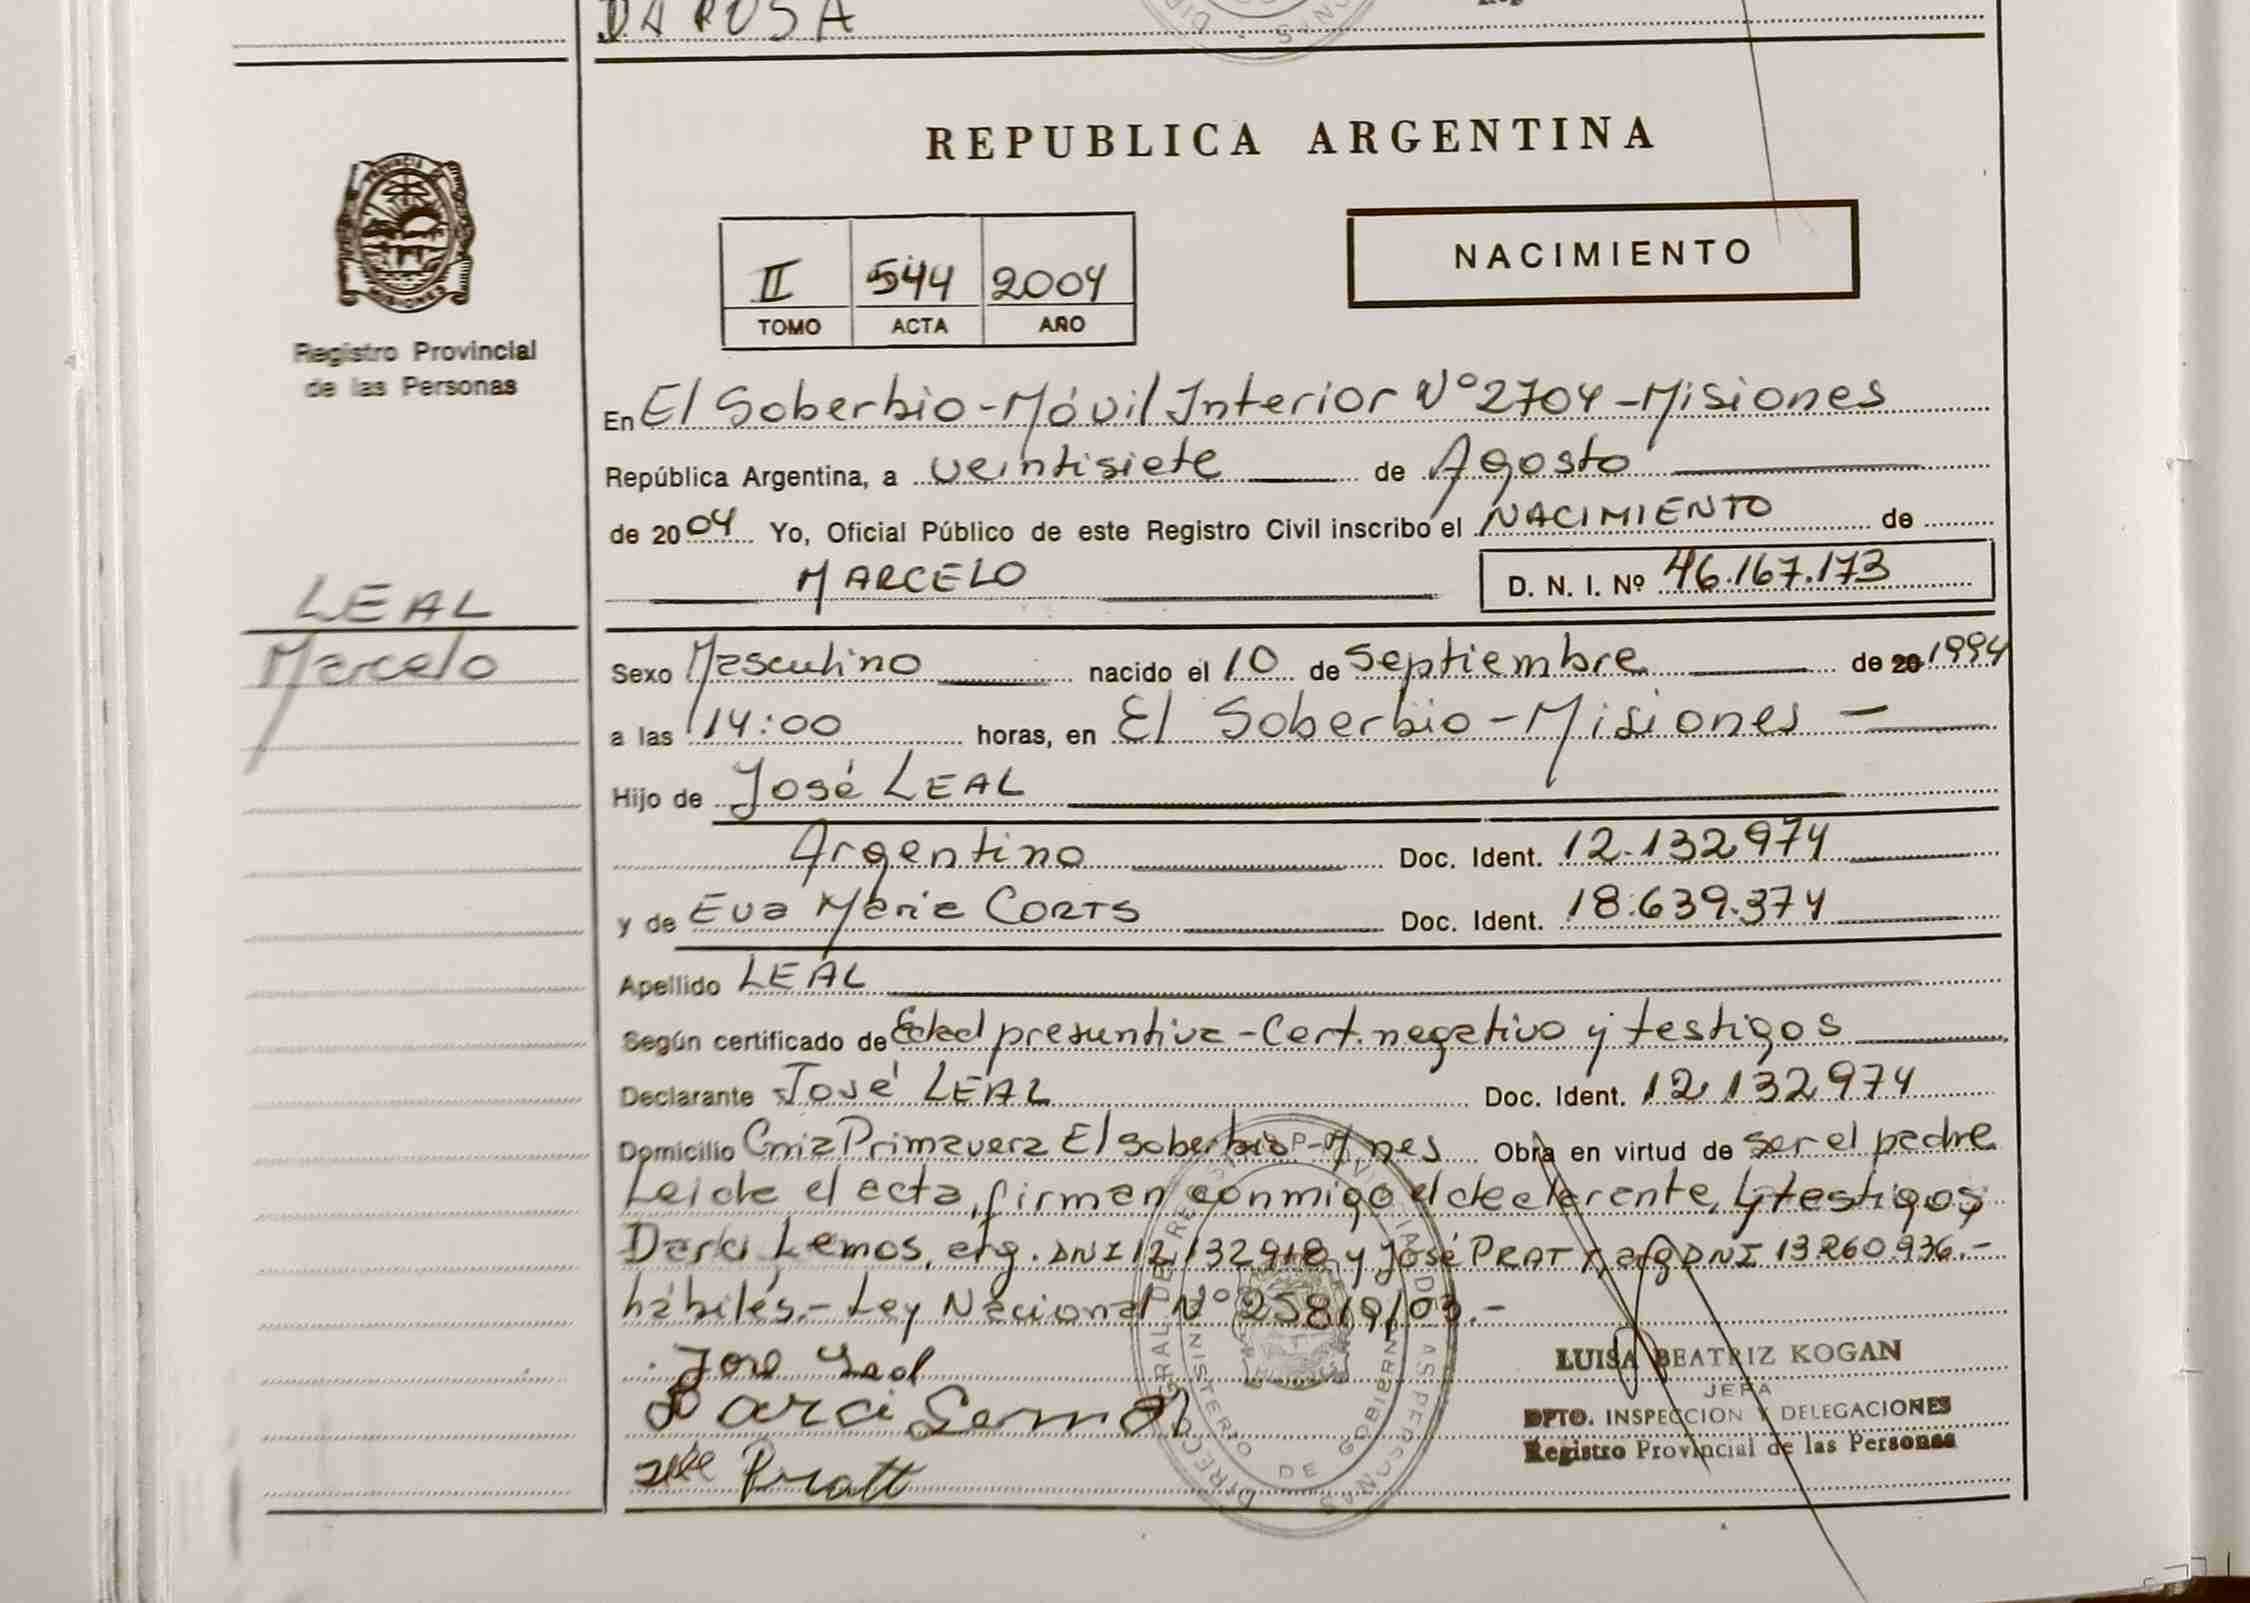 DA ROSA
REPUBLICA ARGENTINA
PROVINCIA DE MISIONES
Registro Provincial
de las Personas
II 544 2004
TOMO ACTA AÑO
NACIMIENTO
En El Soberbio-Móvil Interior Nº 2704-Misiones
República Argentina, a veintisiete de Agosto
de 2004 Yo, Oficial Público de este Registro Civil inscribo el NACIMIENTO de
MARCELO D. N. I. Nº 46.167.173
LEAL
Marcelo
Sexo Masculino nacido el 10 de Septiembre de 20 1994
a las 14:00 horas, en El Soberbio-Misiones
Hijo de José LEAL
Argentino Doc. Ident. 12.132.974
y de Eva Maria CORTS Doc. Ident. 18.639.374
Apellido LEAL
Según certificado de Edad presuntiva-Cert. negativo y testigos
Declarante José LEAL Doc. Ident. 12.132.974
Domicilio Cnia Primavera El Soberbio-Mnes Obra en virtud de ser el padre
Leida el acta, firman conmigo el declarante, y testigos
Darci Lemos, arg. DNI 12.132.918 y José PRATT, arg DNI 13.260.936.-
hábiles.- Ley Nacional Nº 25819/03.-
José Leal
Darci Lemos
José Pratt
LUISA BEATRIZ KOGAN
JEFA
DPTO. INSPECCION Y DELEGACIONES
Registro Provincial de las Personas
DIRECCION GRAL DE REGISTRO PROVINCIAL DE LAS PERSONAS
MINISTERIO DE GOBIERNO